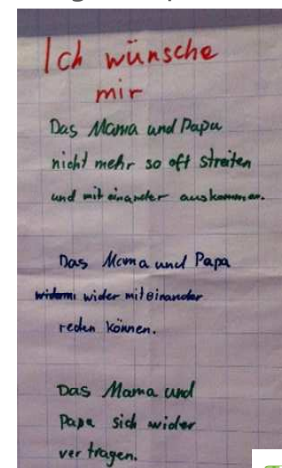 Ich wünsche
mir
Das Mama und Papa
nicht mehr so oft streiten
und miteinander auskommen.
Das Mama und Papa
wider miteinander
reden können.
Das Mama und
Papa sich wider
vertragen.